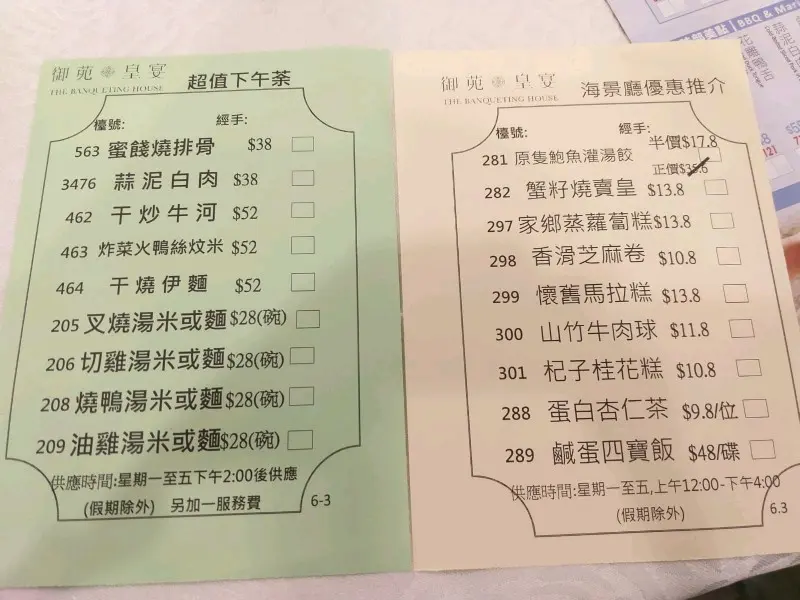 御苑 皇宴
THE BANQUETING HOUSE
超值下午荼
檯號: 經手:
563 蜜餞燒排骨 $38
3476 蒜泥白肉 $38
462 干炒牛河 $52
463 炸菜火鴨絲炆米 $52
464 干燒伊麵 $52
205 叉燒湯米或麵 $28(碗)
206 切雞湯米或麵 $28(碗)
208 燒鴨湯米或麵 $28(碗)
209 油雞湯米或麵 $28(碗)
供應時間:星期一至五下午2:00後供應
(假期除外) 另加一服務費
6-3
御苑 皇宴
THE BANQUETING HOUSE
海景廳優惠推介
檯號: 經手:
半價$17.8
281 原隻鮑魚灌湯餃
正價$35.6
282 蟹籽燒賣皇 $13.8
297 家鄉蒸蘿蔔糕 $13.8
298 香滑芝麻卷 $10.8
299 懷舊馬拉糕 $13.8
300 山竹牛肉球 $11.8
301 杞子桂花糕 $10.8
288 蛋白杏仁茶 $9.8/位
289 鹹蛋四寶飯 $48/碟
供應時間:星期一至五,上午12:00-下午4:00
(假期除外)
6.3
BBQ &